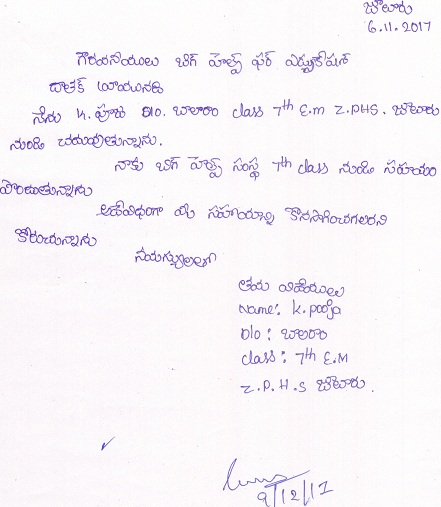 జౌలూరు
6.11.2017
గౌరవనీయులు బిగ్ హెల్ప్ ఫర్ ఎడ్యుకేషన్
దాతకి
నేను K. పూజ D/o. బాలరాం class 7th E.m Z.PHS. జౌలూరు
నుండి చదువుతున్నాను.
నాకు బిగ్ హెల్ప్ సంస్థ 7th class నుండి సహాయం
పొందుతున్నాను
అదేవిధంగా మీ సహాయాన్ని కొనసాగించగలరని
కోరుచున్నాను
ఇట్లు
తమ విధేయులు
Name: K. pooja
D/o : బాలరాం
class : 7th E.M
Z.P.H.S జౌలూరు.
9/12/17